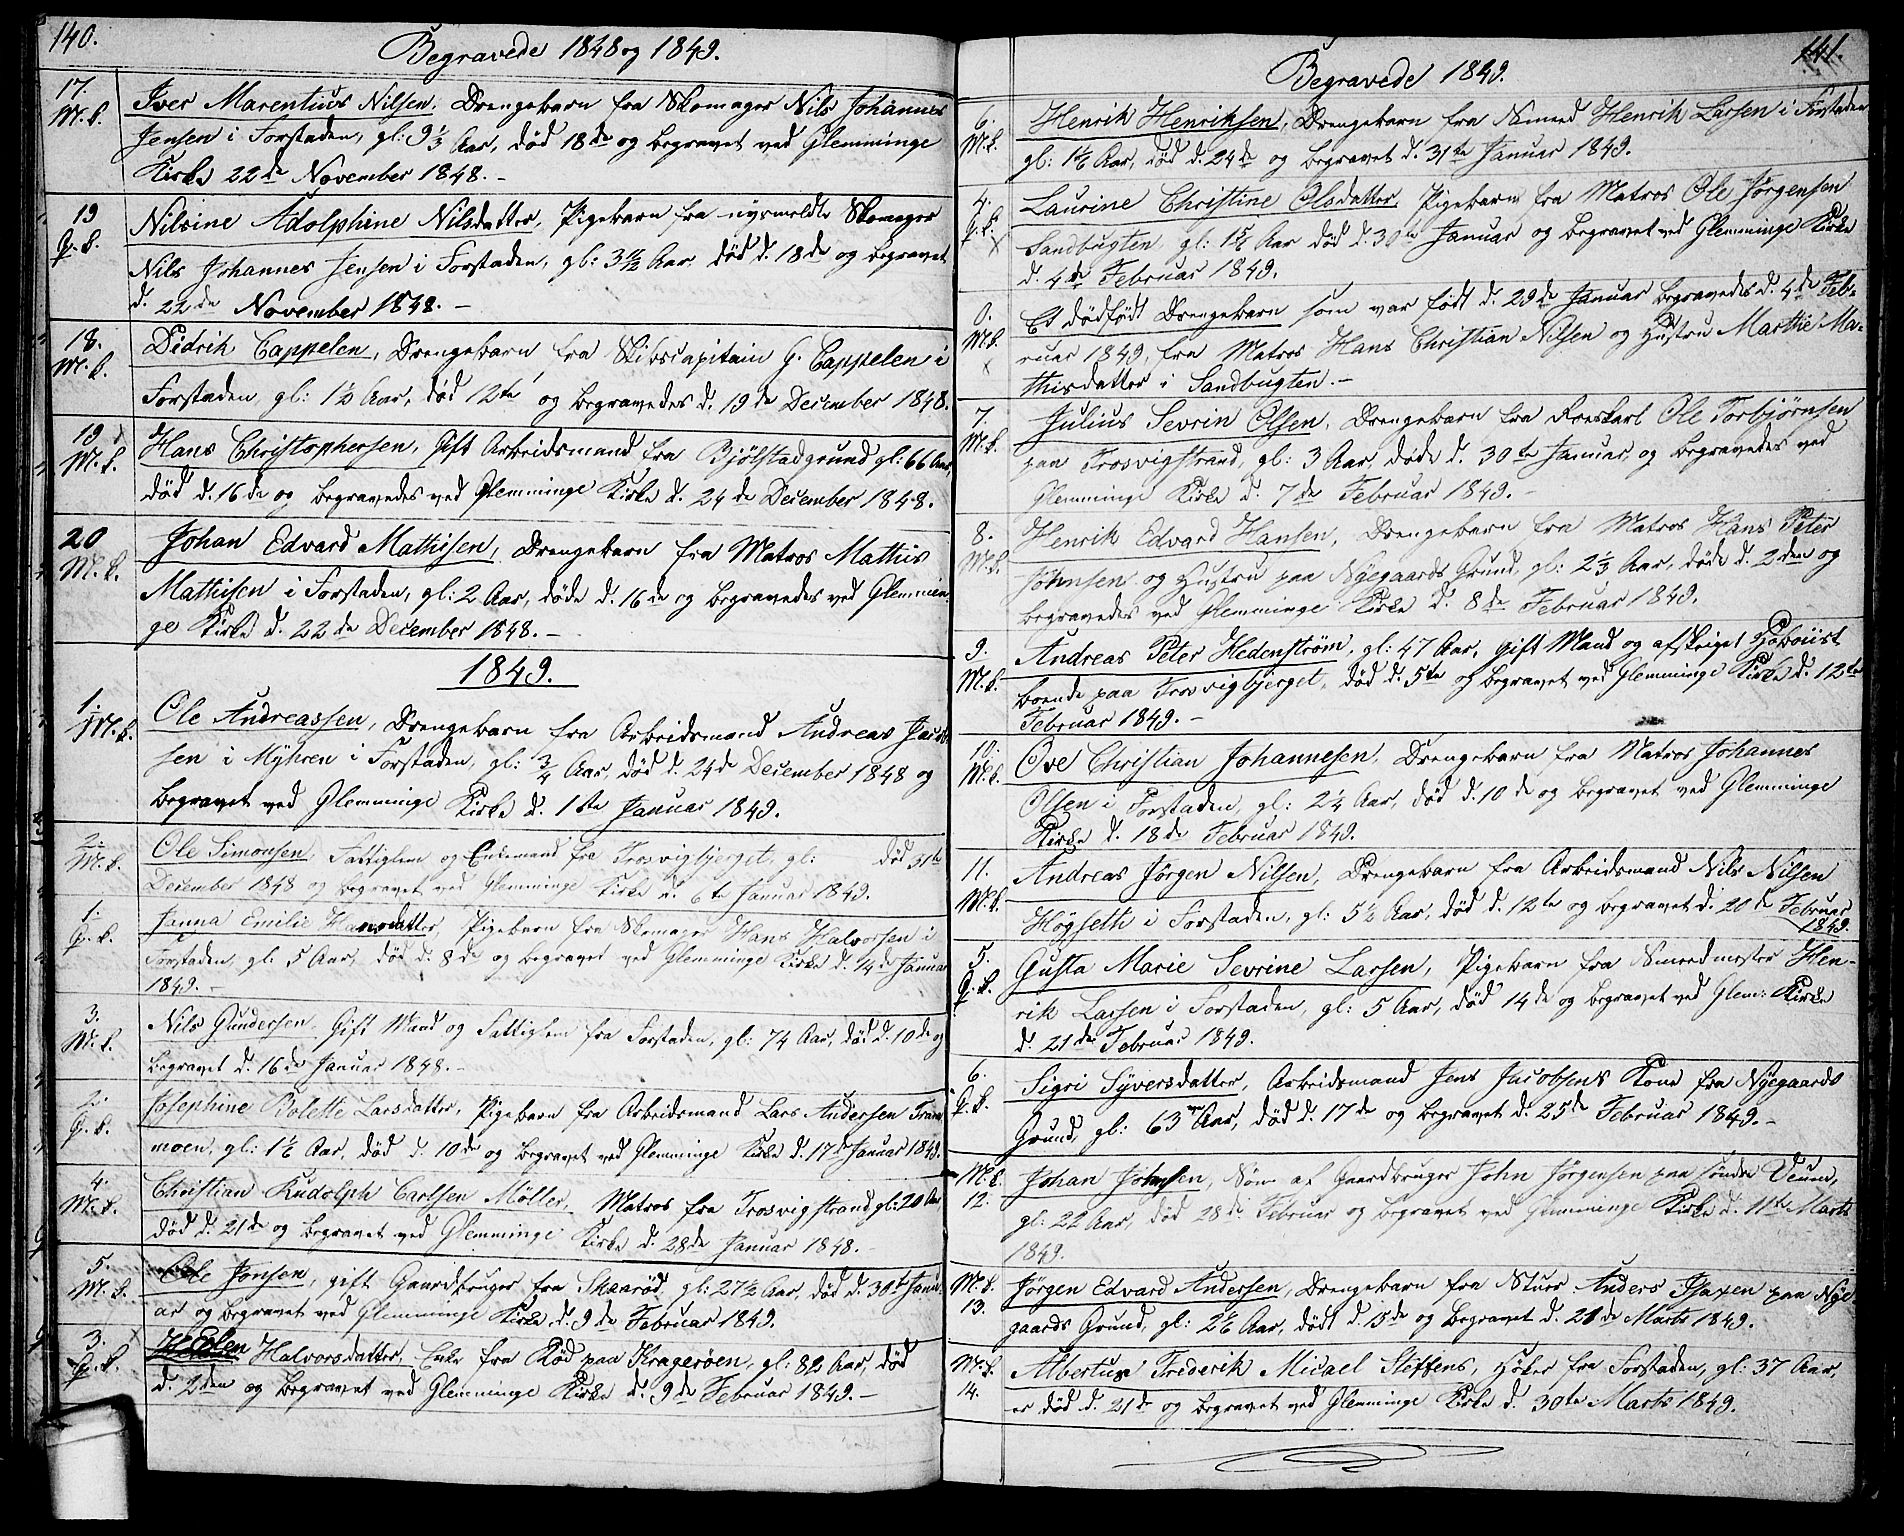 140.
Begravede 1848 og 1849.
17.
M. k.
Iver Marentius Nilsen, Drengebarn fra Skomager Nils Johannes
Jensen i Forstaden, gl: 9 1/3 Aar, død 18de og begravet ved Glemminge
Kirke 22de November 1848. -
19
Q. k.
Nilsine Adolphine Nilsdatter, Pigebarn fra nysmeldte Skomager
Nils Johannes Jensen i Forstaden, gl: Aar, død d. 18de og begravet
d. 22de November 1848. -
18.
M. k.
Didrik Cappelen, Drengebarn fra Skibscapitain G. Cappelen i
Forstaden gl: 1½ Aar, død 12te og begravedes d. 19de December 1848.
19
M. k.
Hans Christophersen, Gift Arbeidsmand fra Bjølstadgrund gl: 66 Aar,
død d. 16de og begravedes ved Glemminge Kirke d. 24de December 1848.
20
M. k.
Johan Edvard Mathisen, Drengebarn fra Matros Mathis
Mathisen i Forstaden, gl: 2 Aar, døde d. 16de og begravedes ved Glemmin-
ge Kirke d. 22de December 1848. -
1849.
1.
M. k.
Ole Andreassen, Drengebarn fra Arbeidsmand Andreas
sen i Myhren i Forstaden, gl: ¾ Aar, død d. 24de December 1848 og
begravet ved Glemminge Kirke d. 1ste Januar 1849.
2.
M. k.
Ole Simonsen, Fattiglem og Enkemand fra Trosvigbjerget, gl: død 31te
December 1848 og begravet ved Glemminge Kirke d. 6te Januar 1849.
1.
Q. k.
Janna Emilie Hansdatter, Pigebarn fra Skomager Hans Halvorsen i
Forstaden, gl: 5 Aar, død d. 8de og begravet ved Glemminge Kirke d. 14de Januar
1849. -
3.
M. k.
Nils Gundersen, Gift Mand og Fattiglem fra Forstaden, gl: 74 Aar, død d. 10de og
begravet d. 16de Januar 1848. -
2.
Q. k.
Josephine Bolette Larsdatter, Pigebarn fra Arbeidsmand Lars Andersen
moen, gl: 1½ Aar, død d. 10de og begravet ved Glemminge Kirke d. 17de Januar 1849.
4.
M. k.
Christian Rudolph Carlsen Møller, Matros fra Trosvigstrand gl: 20 Aar,
død d. 21de og begravet ved Glemminge Kirke d. 28de Januar 1848. -
5.
M. k.
Ole Jonsen, gift Gaardbruger fra Skaarød, gl: 27½ Aar, død d. 30te Janu-
ar og begravet ved Glemminge Kirke d. 9de Februar 1849.
3.
Q. k.
Elen Halvorsdatter, Enke fra Rød paa Kragerøen, gl: 82 Aar, død
d. 2den og begravet ved Glemminge Kirke d. 9de Februar 1849. -
141.
Begravede 1849.
6.
M. k.
Henrik Henriksen, Drengebarn fra Henrik Larsen i Forstaden
gl: Aar, død d. 24de og begravet d. 31te Januar 1849.
4.
Q. k.
x
Laurine Christine Olsdatter, Pigebarn fra Matros Ole Jørgensen
Sandbugten, gl: Aar død d. 30te Januar og begravet ved Glemminge Kirke
d. 4de Februar 1849.
0.
M. k.
x
Et dødfødt Drengebarn som var født d. 29de Januar begravedes d. 4de Feb-
ruar 1849, fra Matros Hans Christian Nilsen og Hustru Marthe Ma-
thisdatter i Sandbugten. -
7.
M. k.
Julius Sevrin Olsen, Drengebarn fra Ole Torbjørnsen
paa Trosvigstrand, gl: 3 Aar, døde d. 30te Januar, og begravedes ved
Glemminge Kirke d. 7de Februar 1849. -
8.
M. k.
Henrik Edvard Hansen, Drengebarn fra Matros Hans Peter
Johnsen og Hustru paa Nyegaards Grund, gl: 2⅓ Aar, døde d. 2den og
begravedes ved Glemminge Kirke d. 8de Februar 1849.
9.
M. k.
Andreas Peter Hedenstrøm, gl: 47 Aar, gift Mand og afskeiget Hoboist
boende paa Trosvigbjerget, død d. 5te og begravet ved Glemminge Kirke d. 12te
Februar 1849. -
10.
M. k.
Ove Christian Johannesen, Drengebarn fra Matros Johannes
Olsen i Forstaden, gl: 2¼ Aar, død d. 10de og begravet ved Glemminge
Kirke d. 18de Februar 1849.
11.
M. k.
Andreas Jørgen Nilsen, Drengebarn fra Arbeidsmand Nils Nilsen
Høyseth i Forstaden, gl: 5½ Aar, død d. 12te og begravet d. 20de Februar
1849.
5.
Q. k.
Gusta Marie Sevrine Larsen, Pigebarn fra Hen-
rik Larsen i Forstaden, gl: 5 Aar, død 14de og begravet ved Glem: Kirke
d. 21de Februar 1849.
6.
Q. k.
Sigri Syversdatter, Arbeidsmand Jens Jacobsens Kone fra Nyegaards
Grund, gl: 63 Aar, død d. 17de og begravet d. 25de Februar 1849. -
M. k.
12.
Johan Johnsen, Søn af Gaardbruger John Jørgensen paa søndre Veum,
gl: 22 Aar, død 28de Februar og begravet ved Glemminge Kirke d. 11te Marts
1849.
M. k.
13.
Jørgen Edvard Andersen, Drengebarn fra Anders Isaxen paa Nye-
gaards Grund, gl: 2½ Aar, født d. 13de og begravet d. 21de Marts 1849.
M. k.
14.
Albertus Frederik Micael Steffens, Høker fra Forstaden, gl: 37 Aar,
er død d. 21de og begravet ved Glemminge Kirke d. 30te Marts 1849.